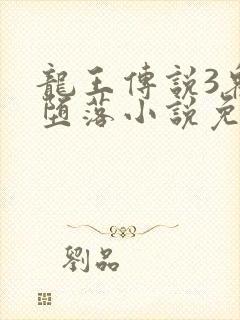 龍王傳說3
墮落小說免
劉品